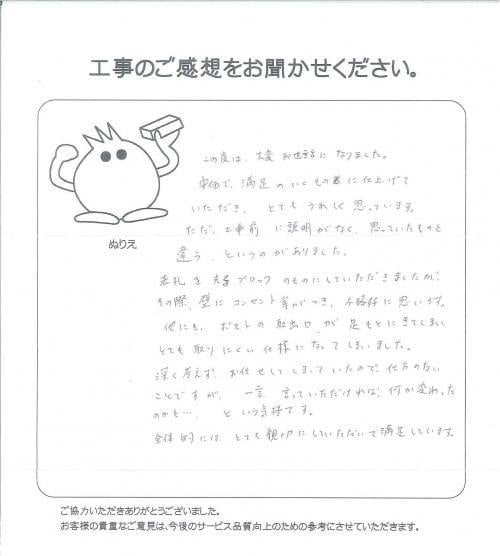 工事のご感想をお聞かせください。
ぬりえ
この度は、大変お世話になりました。
安価で、満足のいくもの に仕上げて
いただき、とてもうれしく思っています。
ただ、工事前に説明がなく、思っていたものと
違う、というのがありました。
表札を ブロックのものにしていただきましたが、
その際、壁にコンセント等がつき、不格好に思います。
他にも、ポストの取出口が足もとにきてしまい
とても取りにくい仕様になってしまいました。
深く考えず、お任せしてしまっていたので、仕方のない
ことですが、一言、言っていただければ、何か変わった
のかも…、という気持です。
全体的には、とても親切にしていただいて満足しています。
ご協力いただきありがとうございました。
お客様の貴重なご意見は、今後のサービス品質向上のための参考にさせていただきます。